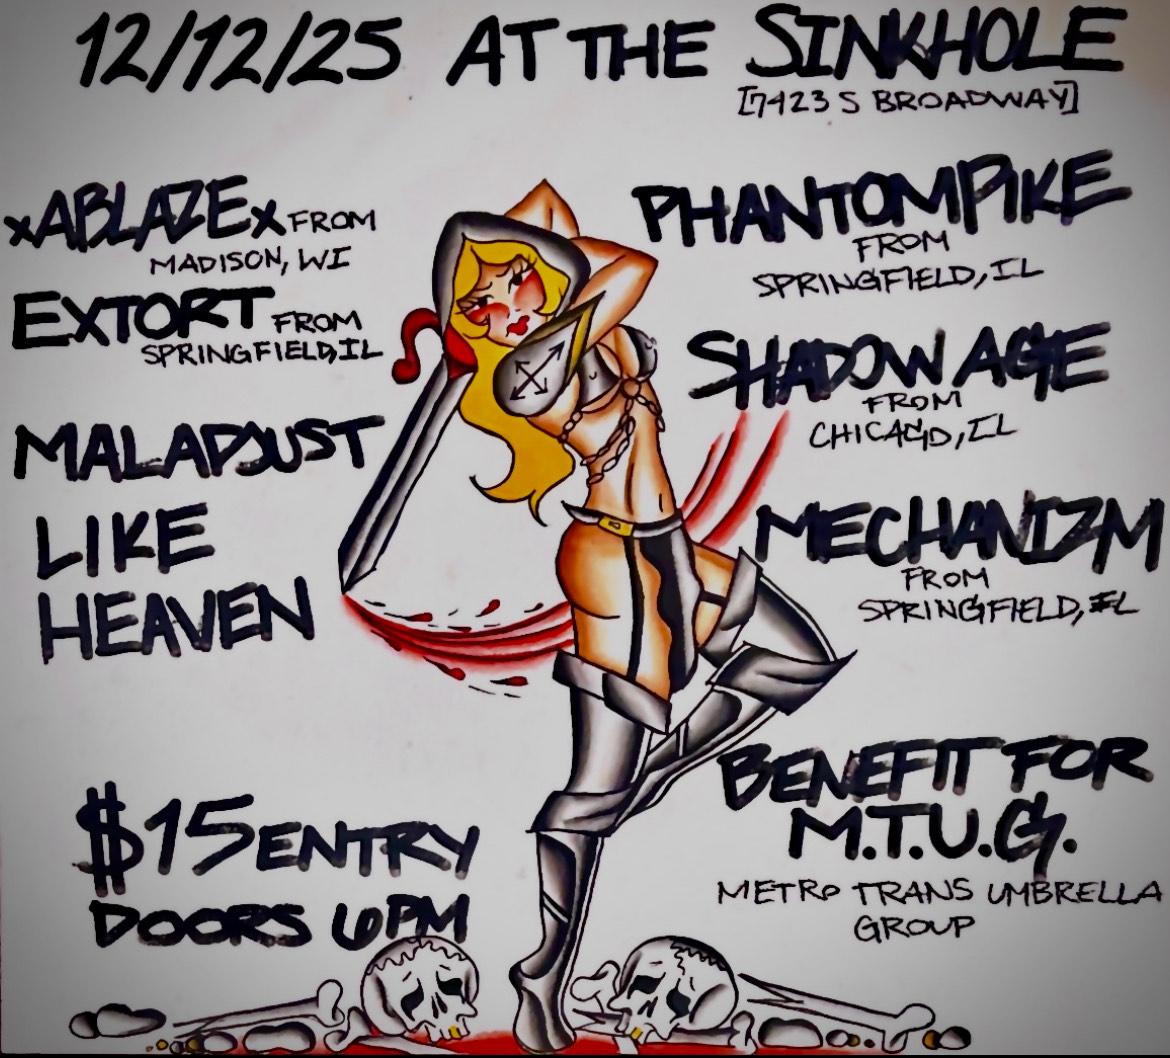 12/12/25 AT THE SINKHOLE
[7423 S BROADWAY]
xABLAZEx FROM
MADISON, WI
EXTORT FROM
SPRINGFIELD, IL
MALADJUST
LIKE
HEAVEN
PHANTOMPIKE
FROM
SPRINGFIELD, IL
SHADOW AGE
FROM
CHICAGO, IL
MECHANIZM
FROM
SPRINGFIELD, IL
$15 ENTRY
DOORS 6PM
BENEFIT FOR
M.T.U.G.
METRO TRANS UMBRELLA
GROUP